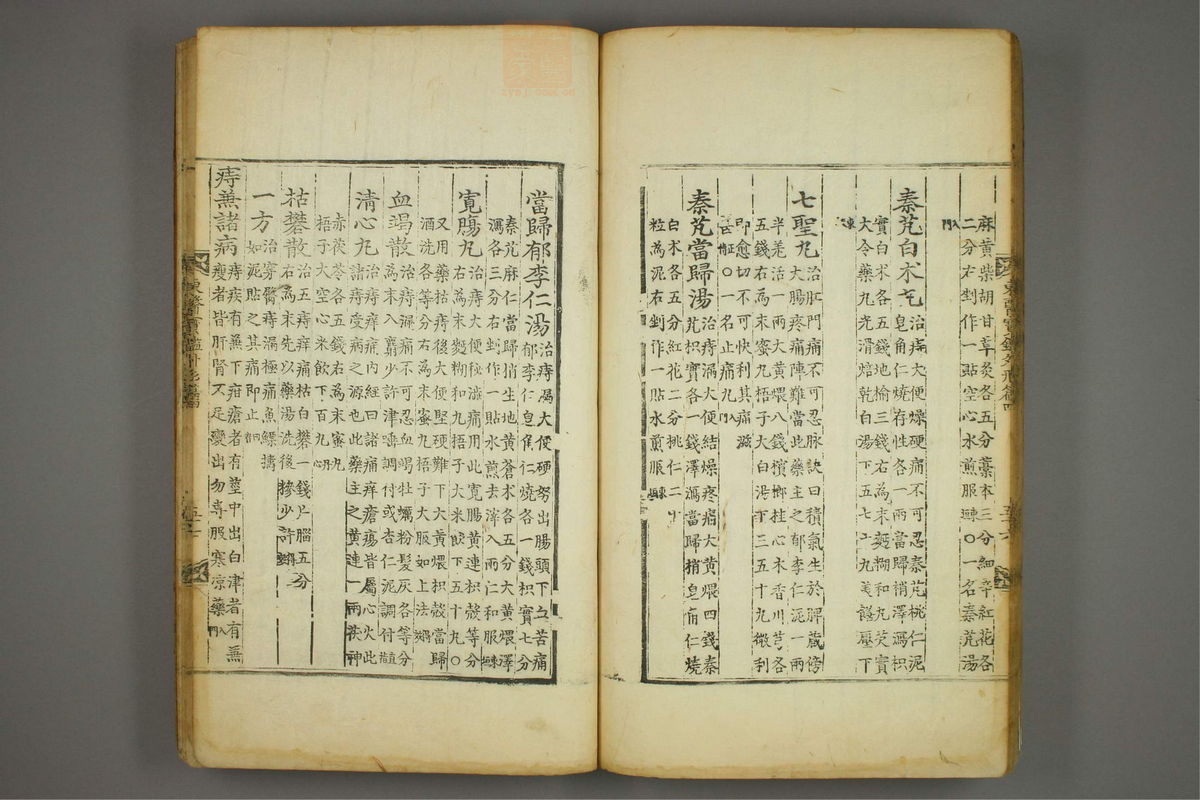 麻黃柴胡甘草灸各五分藁本三分細辛紅花各
二分右剉作一貼空心水煎服○一名秦芃湯
入門
秦芃白朮丸
治痔大便燥硬痛不可忍秦芃桃仁泥
皂角仁燒存性各一兩當歸梢澤瀉枳
實白朮各五錢地榆三錢右為末麪糊和丸芡實
大令藥丸光滑焙乾白湯下五七十丸美饍壓下
七聖丸
治肛門痛不可忍脉訣曰積氣生於脾藏傍
大腸疼痛陣難當此藥主之郁李仁泥一兩
半羌活一兩大黃煨八錢檳榔桂心木香川芎各
五錢右為末蜜丸梧子大白湯下三五十丸微利
即愈切不可快利其痛滋
甚○一名止痛丸入門
秦芃當歸湯
治痔漏大便結燥疼痛大黃煨四錢秦
芃枳實各一錢澤瀉當歸梢皂角仁燒
白朮各五分紅花二分桃仁二十
粒為泥右剉作一貼水煎服
當歸郁李仁湯
治痔漏大便硬努出腸頭下血苦痛
郁李仁皂角仁燒各一錢枳實七分
秦芃麻仁當歸梢生地黃蒼朮各五分大黃煨澤
瀉各三分右剉作一貼水煎去滓入兩仁和服
寬腸丸
治痔大便秘澁痛用此寬腸黃連枳殼等分
右為末麪糊和丸梧子大米飮下五十丸○
又用藥後大便堅硬難下大黃煨枳殼當歸
酒洗各等分右為末蜜丸梧子大服如上法
血竭散
治痔漏痛不可忍血竭牡蠣粉髮灰各等分
為末入麝少許津唾調付或杏仁泥調付
清心丸
治痔痒痛內經曰諸痛痒瘡瘍皆屬心火此
諸痔受病之源也此藥主之黃連一兩茯神
赤茯苓各五錢右為末蜜丸
梧子大空心米飮下百丸
枯礬散
治五痔痒痛枯白礬一錢片腦五分
右為末先以藥湯洗後摻少許
一方
治穿臀痔漏極痛魚鰾擣
如泥貼之其痛即止
痔兼諸病
痔疾有兼下疳瘡者有莖中出白津者有兼
瘦者皆肝腎不足變出勿專服寒凉藥入門